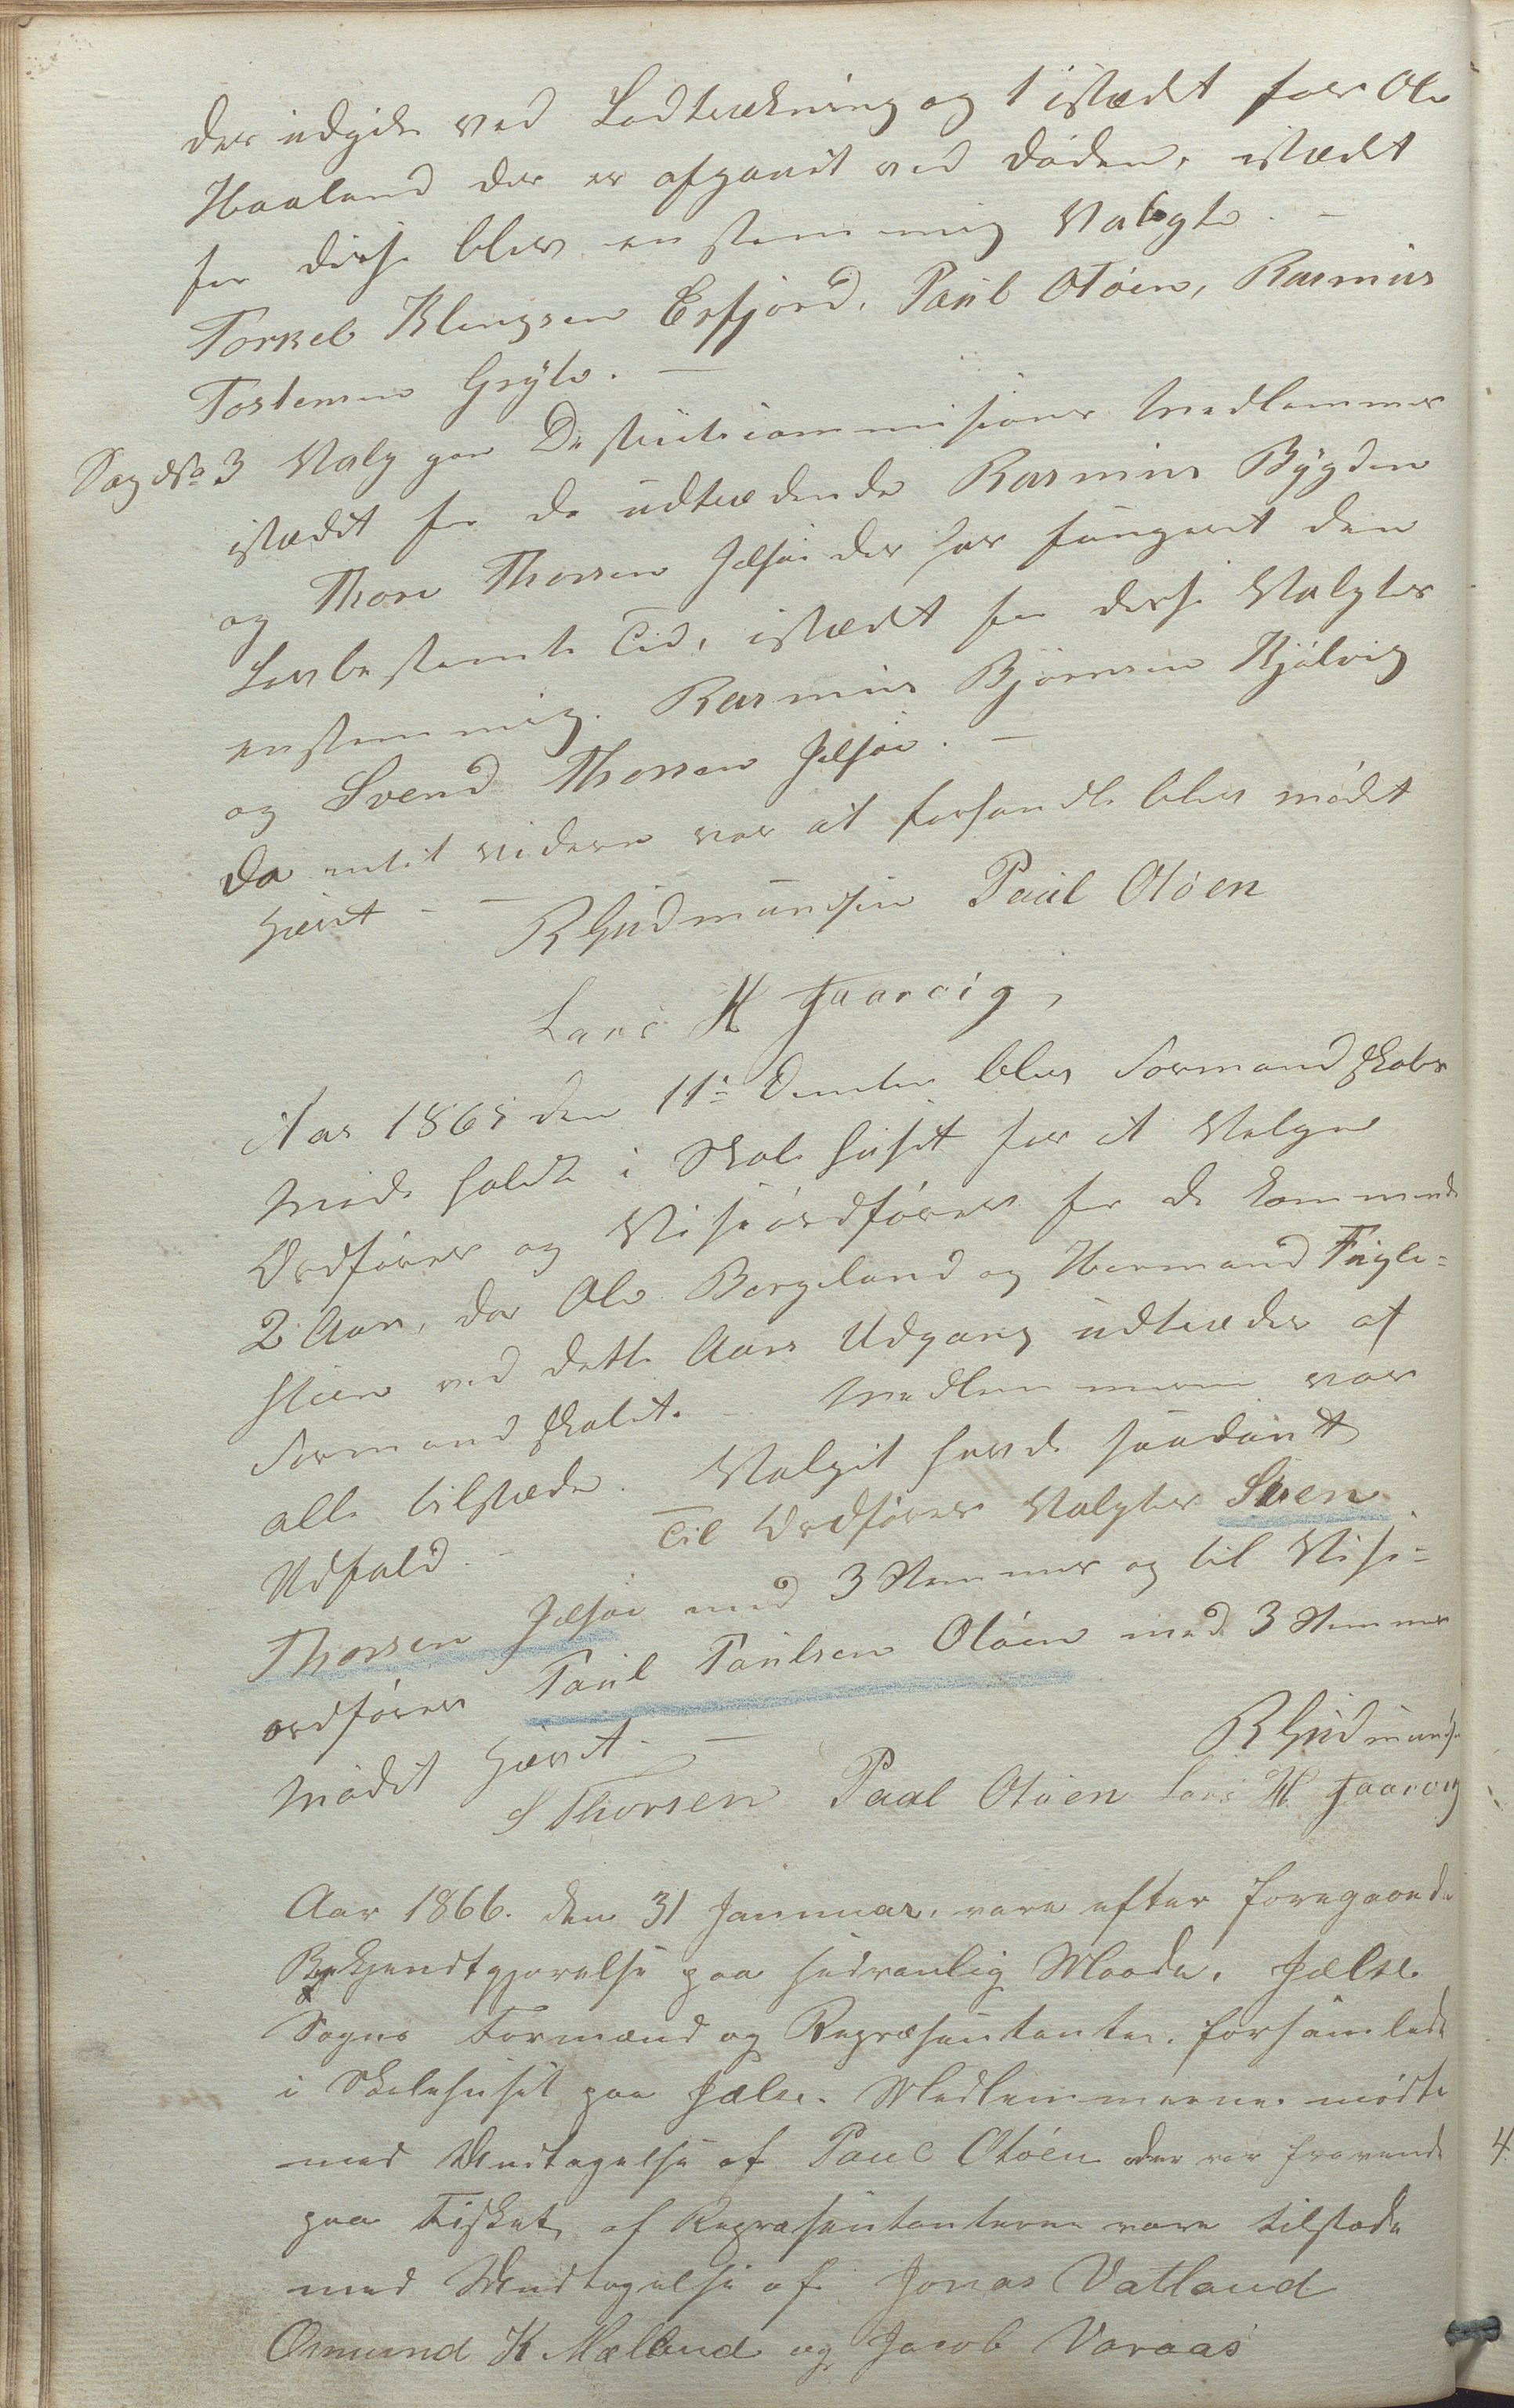 der udgik ved Lodtrækning og 1 istædet for Ole
Haaland der er afgaaet ved døden, istædet
for disse blev enstemmig Valgte. —
Torkel Klengsen Erfjord, Paul Otøen, Rasmus
Tostensen Gryte. —
Sag No 3 Valg paa Distriktscommisions Medlemmer
istædet for de udtrædende Rasmus Bygden
og Thore Thorsen Jelsøe der har fungeret den
Lovbestemte Tid, istædet for disse Valgtes
enstemmig. Rasmus Bjørnsen Kjølvig
og Svend Thorsen Jelsøe. —
Da intet videre var at forhandle blev mødet
hævet — R Gudmundsen Paul Otøen
Lars H Jaarvig,
Aar 1865 den 11te Decmbr blev Formandskabs
Møde holdt i Skolehuset for at Velge
Ordfører og Viseordfører for de kommende
2 Aar, da Ole Bergeland og Hermand Fugle=
stien ved dette Aars Udgang udtræder af
Formandskabet. — Medlemmerne var
alle tilstæde. Valget havde saadant
Udfald. — Til Ordfører Valgtes Sven
Thorsen Jelsøe med 3 Stemmer og til Vise=
ordfører Paul Paulsen Otøen med 3 Stemmer
Mødet hævet. — R Gudmundsen
S Thorsen Paul Otøen Lars H Jaarvig
Aar 1866. den 31 Januar, vare efter foregaaende
Bekjendtgjørelse paa sædvanlig Maade, Jælse
Sogns Formænd og Repræsentanter, forsamlede
i Skolehuset paa Jælse. Medlemmerne mødte
med Undtagelse af Paul Otøen der var fraværende
paa Fisket, af Repræsentanterne vare tilstæde
med Undtagelse af Jonas Vatland
Osmund K. Mælland og Jacob Varaas